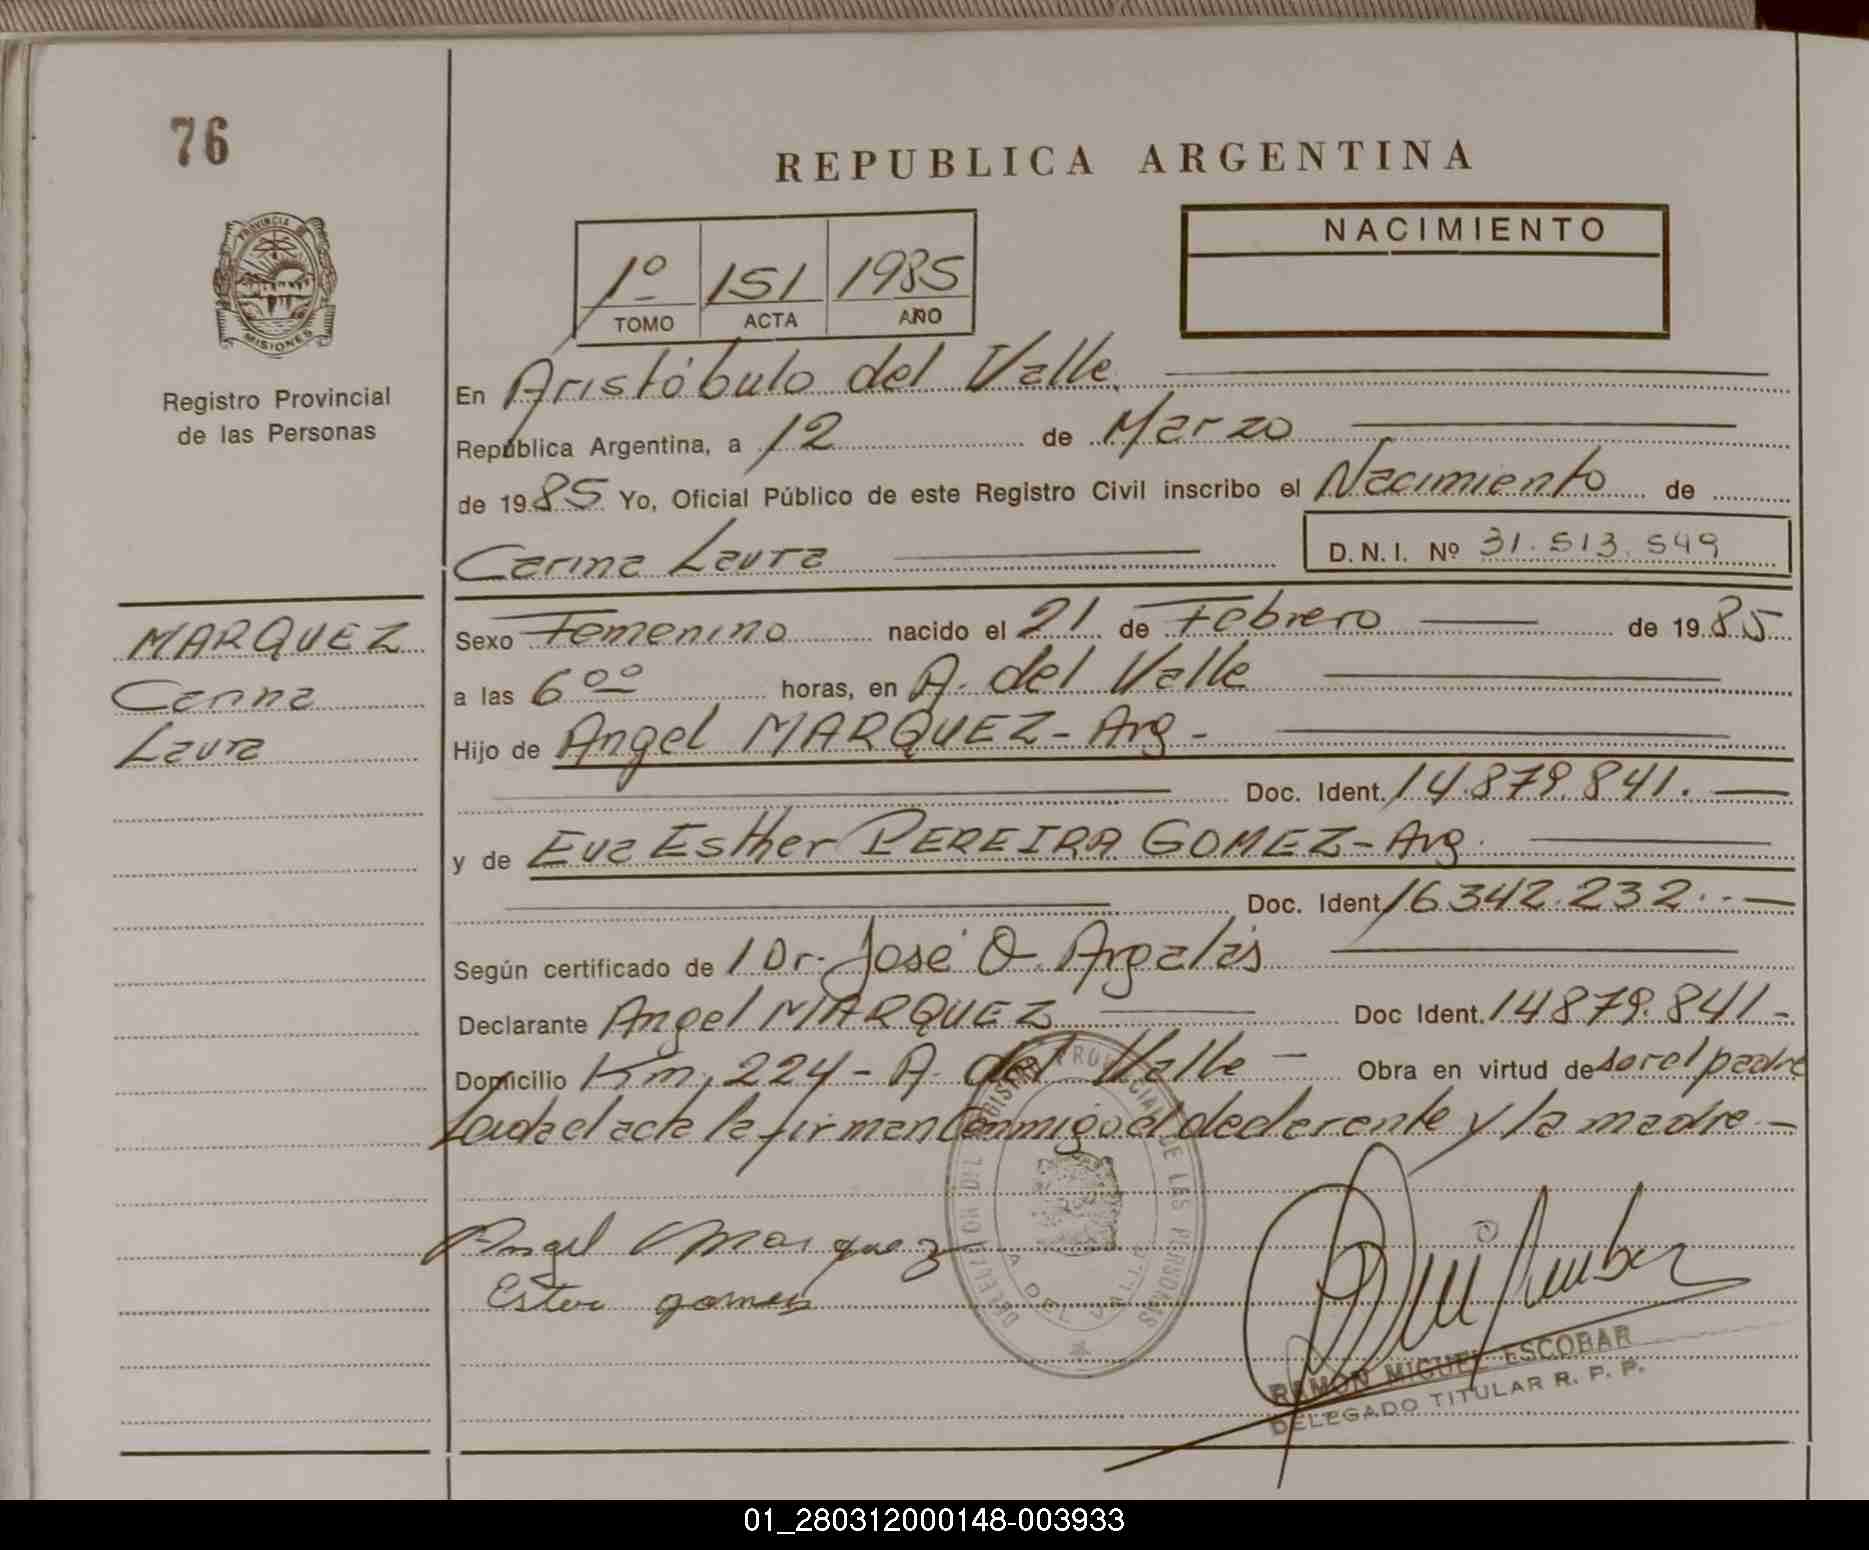 76
REPUBLICA ARGENTINA
PROVINCIA DE
MISIONES
Registro Provincial
de las Personas
1º 151 1985
TOMO ACTA AÑO
NACIMIENTO
En Aristóbulo del Valle
República Argentina, a 12 de Marzo
de 1985 Yo, Oficial Público de este Registro Civil inscribo el Nacimiento de
Carina Laura
D.N.I. Nº 31.513.549
MARQUEZ
Carina
Laura
Sexo Femenino nacido el 21 de Febrero de 1985
a las 6 00 horas, en A. del Valle
Hijo de Angel MARQUEZ - Arg -
Doc. Ident. 14.879.841. -
y de Eva Esther PEREIRA GOMEZ - Arg.
Doc. Ident. 16342.232. -
Según certificado de 1 Dr. José O. Argalás
Declarante Angel MARQUEZ Doc Ident. 14879.841 -
Domicilio Km. 224 - A. del Valle - Obra en virtud de ser el padre
Leida el acta la firman Conmigo el declarante y la madre -
DELEGACION DEL REGISTRO PROVINCIAL DE LAS PERSONAS
A. DEL VALLE
Angel Marquez
Ester gomes
RAMON MIGUEL ESCOBAR
DELEGADO TITULAR R. P. P.
01_280312000148-003933